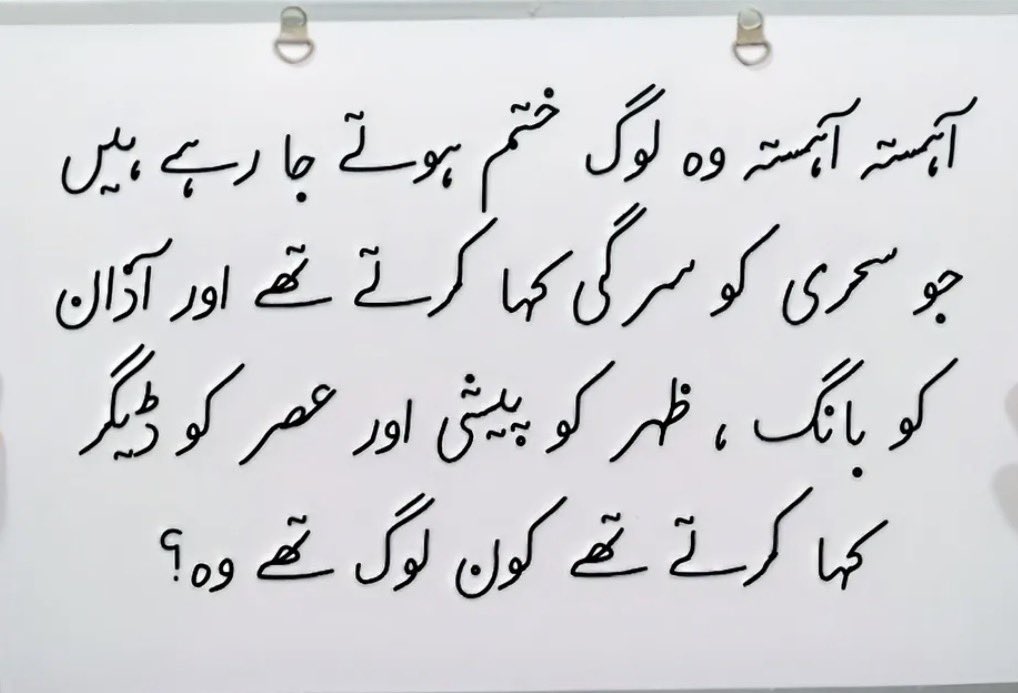 آہستہ آہستہ وہ لوگ ختم ہوتے جا رہے ہیں
جو سحری کو سرگی کہا کرتے تھے اور آذان
کو بانگ ، ظہر کو پیشی اور عصر کو ڈیگر
کہا کرتے تھے کون لوگ تھے وہ؟